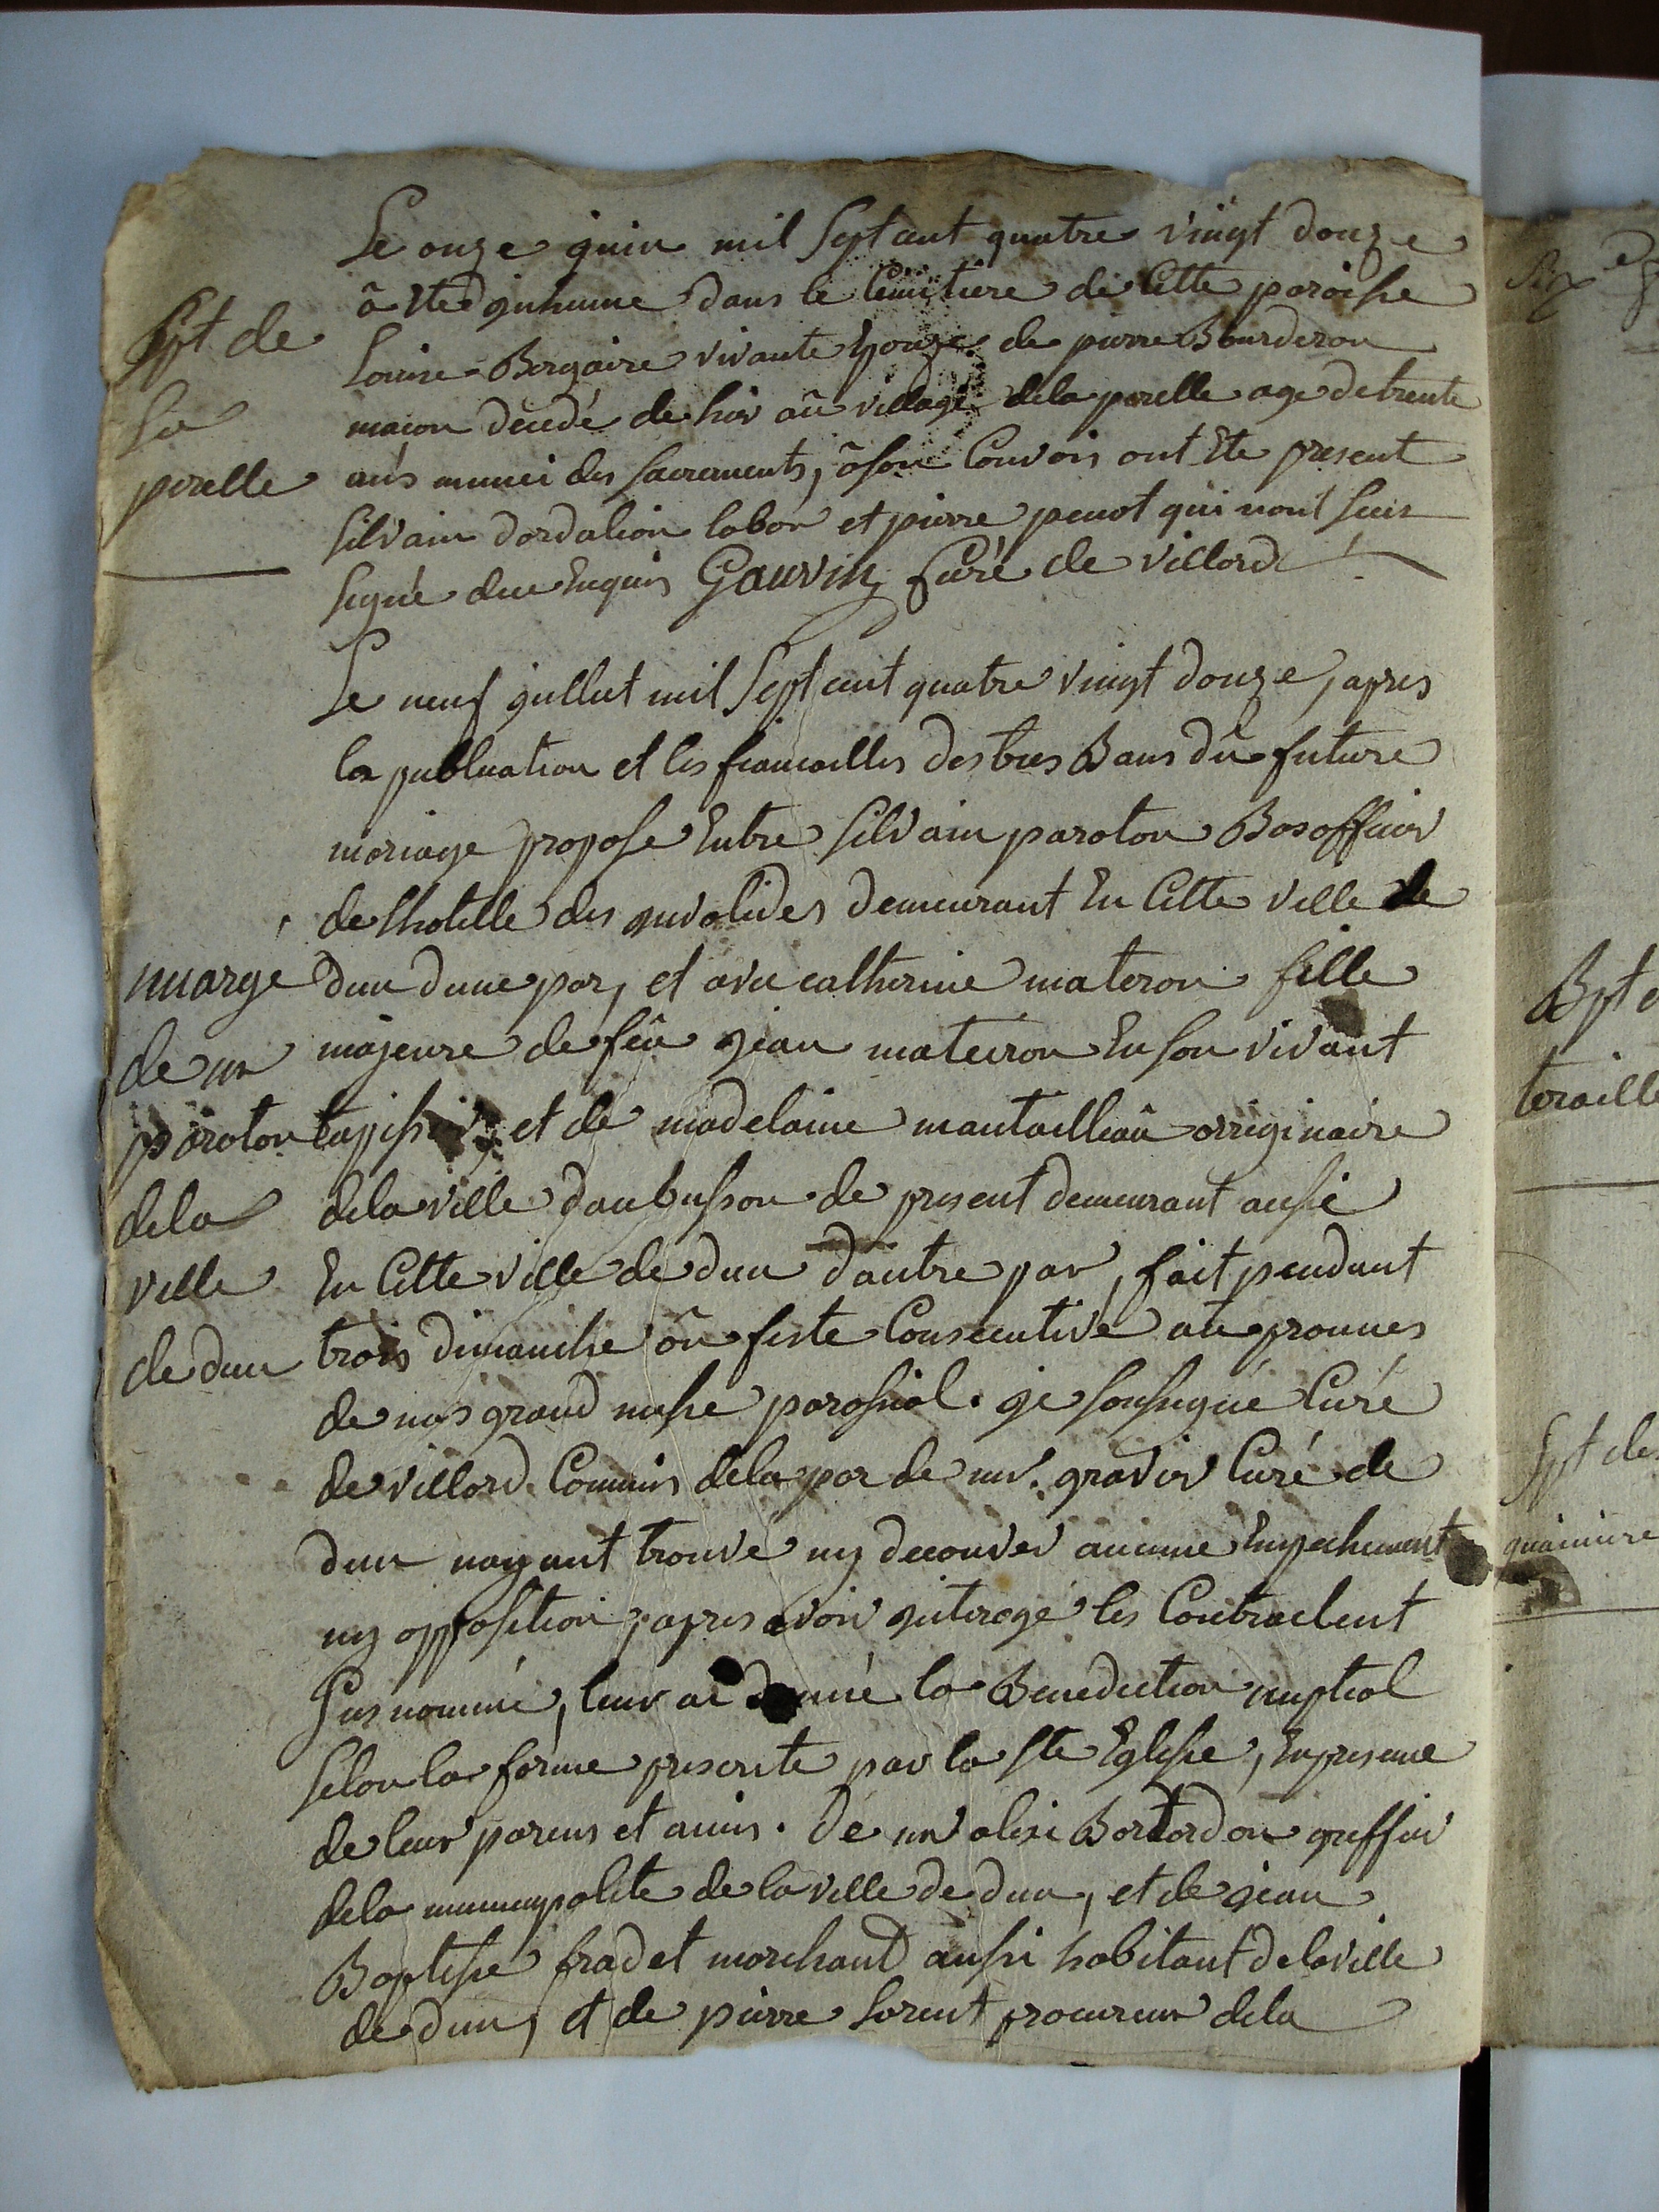 Le onze juin mil Sept cent quatre vingt douze
â Ete jnhume dans le Cemitiere de Cette paroisse
Spt de
Louise Bergaire vivante Epouze de pierre Bourderon
la
maçon decedé de hier aû village dela perelle age de trente
perelle
ans munei des sacrements, â son Convois ont Ete present
silvain dardalion labor et pierre penot qui nont seus
signé due Enquis Gauvin, Curé de villard
Le neuf jullet mil Sept cent quatre vingt douze, apres
la publication et les fiancailles des tres Bans dû future
mariage propose Entre silvain paroton Bas officier
de lhotelle des jnvalides demeurant En Cette ville de
mарge
dun dune par, et avec catherine materon fille
de mr
majeure de feû jean mateiron En son vivant
paroton
tapissier, et de madelaine mantailleaû orriginaire
dela
dela ville daubusson de present demeurant aussi
ville
En Cette ville de dun dautre par, fait pendant
de dun
trois dimanche oû feste Consecutive aû pronnes
de nos grand messe parossial. je soussigné Curé
de villard Commis dela par de mr. gravier Curé de
dun nayant trouvé ny decouver aucune Empechement
ny opposition, apres avoir jnterogé les Contractent
Susnommé, leur ai donné la Benediction nuptial
selon la forme prescrite par la ste Eglisse, En presence
de leur parens et amis. De mr alexi Bartardon greffier
dela municipalite de la ville de dun, et de jean
Baptisse fradet marchand aussi habitant dela ville
de dun, et de pierre lorent procureur dela
Bpt
teraille
Spt de